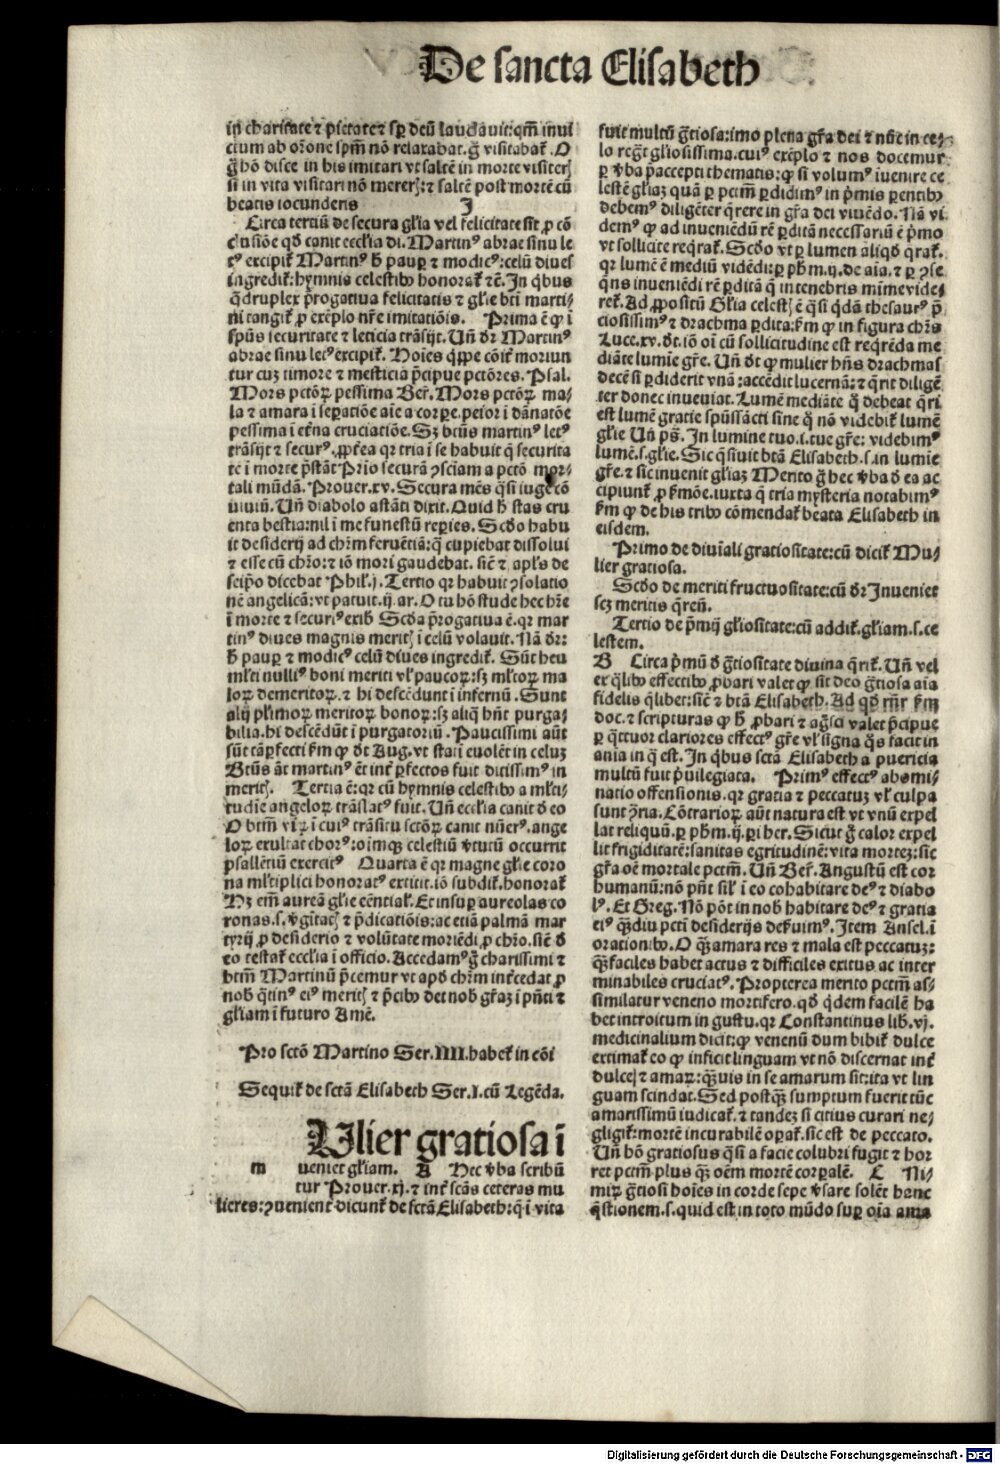 De sancta Elisabeth
in charitate ⁊ pietate ⁊ sꝑ deū laudauit: qm̄ inui
ctum ab orōne spm̄ nō relaxabat. g̊ visitabat̉. O
g̊ hō disce in his imitari vt saltē in morte visiteris
si in vita visitari nō mereris: ⁊ saltē post mortē cū
beatis iocunderis J
Circa tertiū de secura gl̉ia vel felicitate sit ꝓ cō
clusiōe qd̉ canit eccl̉ia di. Martinꝰ abrae sinu le
tꝰ excipit̉ Martinꝰ h̉ pauꝑ ⁊ modicꝰ: celū diues
ingredit̉: hymnis celestibꝰ honorat̉ ⁊c̄. In q̇bus
q̇druplex p̄rogatiua felicitatis ⁊ gl̉ie bt̄i marti-
ni tangit̉ ꝓ exēplo nr̄e imitatiōis. Prima ē ꝙ ī
spūs securitate ⁊ leticia trāsijt. Uñ dr̄ Martinꝰ
abrae sinu letꝰ excipit̉. Hoīes q̇ppe cōit̉ moriun
tur cuꝫ timore ⁊ mesticia p̄cipue pctōres. Psal.
Mors pctōꝝ pessima Ber̄. Mors pctōꝝ ma-
la ⁊ amara ī seꝑatiōe aīe a corꝑe. peior ī dānatōe
pessima ī et̉na cruciatiōe. Sꝫ btūs martinꝰ letꝰ
trāsijt ⁊ securꝰ. ꝓpt̉ea qr tria ī se habuit q̄ securita
tē ī morte p̄stāt Prīo securā ꝯsciam a pctō mor-
tali mūdā. Prouer. xv. Secura mēs q̄si iuge cō
uiuiū. Uñ diabolo astāti dixit. Quid h̉ stas cru
enta bestia: nil ī me funestū reꝑies. Scd̉o habu
it desideriū ad chr̄m feruētiā: q̄ cupiebat dissolui
⁊ esse cū chr̄o: ⁊ iō mori gaudebat. sic̄ ⁊ apl̉s de
seip̄o dicebat Phil̉. j. Tertio qr habuit ꝯsolatio
nē angelicā: vt patuit. ij. ar. O tu hō stude hec hr̄e
ī morte ⁊ securꝰ eris Scd̉a p̄rogatiua ē. qr mar
tinꝰ diues magnis meritis ī celū volauit. Nā dr̄:
h̉ pauꝑ ⁊ modicꝰ celū diues ingredit̉. Sūt heu
ml̉ti nulliꝰ boni meriti vl̉ paucoꝝ: sꝫ ml̉toꝝ ma
loꝝ demeritoꝝ. ⁊ hi descēdunt ī infernū. Sunt
alij pl̉imoꝝ meritoꝝ bonoꝝ: sꝫ aliq̄ hn̄t purga-
bilia. hi descēdūt ī purgatoriū. Paucissimi aūt
sūt tā ꝑfecti ẜm ꝙ dt̄ Aug. vt statī euolēt in celuꝫ
Btūs āt martinꝰ ēt int̉ ꝑfectos fuit ditissimꝰ in
meritis. Tertia ē: qr cū hymnis celestibꝰ a ml̉ti-
tudīe angeloꝝ trāslatꝰ fuit. Uñ eccl̉ia canit d̉ eo
O btm̄ viꝝ ī cuiꝰ trāsitu sctōꝝ canit nūerꝰ. ange
loꝝ exultat chorꝰ: oīmqꝫ celestiū v̉tutū occurrit
psallētiū exercitꝰ Quarta ē qr magne gl̉ie coro
na ml̉tiplici honoratꝰ extitit. iō subdit̉. honorat̉
Hꝫ em̄ aureā gl̉ie cēntialē. Et insuꝑ aureolas co
ronas. s. v̉gītatis ⁊ p̄dicatiōis: ac etiā palmā mar
tyrij ꝓ desiderio ⁊ volūtate moriēdi ꝓ chr̄o. sic̄ d̉
eo testat̉ eccl̉ia ī officio. Accedamꝰ g̊ charissimi ⁊
btm̄ Martinū p̄cemur vt apd̉ chr̄m int̉cedat ꝓ
nob̉ q̄tinꝰ eiꝰ meritis ⁊ p̄cibꝰ det nob̉ gr̄aꝫ ī pn̄ti ⁊
gl̉iam ī futuro Amē.
Pro sctō Martino Ser. IIII. habet̉ in cōi
Sequit̉ de sctā Elisabeth Ser. I. cū Legēda.
Ulier gratiosa ī
m ueniet gl̉iam. A Hec v̉ba scribū
tur Prouer. xj. ⁊ int̉ scās ceteras mu
lieres: ꝯuenient̉ dicunt̉ de sctā Elisabeth: q̄ ī vita
fuit multū gr̄tiosa: imo plena gr̄a dei ⁊ nūc in ce-
lo regt̄ gl̉iosissima. cuiꝰ exēplo ⁊ nos docemur
ꝑ v̉ba p̄accepti thematis: ꝙ si volumꝰ īuenire ce
lestē gl̉iaꝫ quā ꝑ pctm̄ ꝑdidimꝰ in p̄mis parentibꝰ
debemꝰ diligēter q̄rere in gr̄a dei viuēdo. Nā vi
demꝰ ꝙ ad inueniēdū rē ꝑditā necessariū ē p̄mo
vt sollicite req̄rat̉. Scd̉o vt ꝑ lumen aliqd̉ q̄rat̉.
qr lumē ē mediū vidēdi: ꝑ ph̄m. ij. de aīa. ⁊ ꝑ ꝯse
q̄ns inueniēdi rē ꝑditā q̄ in tenebris mīme vide-
ret̉. Ad ꝓpositū Gl̉ia celestis ē q̄si q̄dā thesaurꝰ p̄
ciosissimꝰ ⁊ drachma ꝑdita: ẜm ꝙ in figura chr̄s
Luce. xv. dt̄. iō oī cū sollicitudine est req̄rēda me
diāte lumīe gr̄e. Uñ dt̄ ꝙ mulier hn̄s drachmas
decē si ꝑdiderit vnā: accēdit lucernā: ⁊ q̄rit diligē
ter donec inueniat. Lumē mediāte q̊ debeat q̄ri
est lumē gratie spūssācti sine q̊ nō videbit̉ lumē
gl̉ie Uñ ps̄. In lumine tuo. i. tue gr̄e: videbimꝰ
lumē. s. gl̉ie. Sic q̄siuit btā Elisabeth. s. in lumīe
gr̄e. ⁊ sic inuenit gl̉iaꝫ Merito g̊ hec v̉ba d̉ ea ac
cipiunt̉ ꝓ ẜmōe. iuxta q̄ tria mysteria notabimꝰ
ẜm ꝙ de his tribꝰ cōmendat̉ beata Elisabeth in
eisdem.
Primo de diuināli gratiositate: cū dicit̉ Mu-
lier gratiosa.
Scd̉o de meriti fructuositate: cū dr̄ Inueniet
scꝫ meritis q̄rēū.
Tertio de p̄mij gl̉iositate: cū addit̉. gl̉iam. s. ce
lestem.
B Circa p̄mū d̉ gr̄tiositate diuina q̄rit̉. Uñ vel
ex q̇libꝰ effectibꝰ ꝓbari valet ꝙ sit deo gr̄tiosa aīa
fidelis q̄libet: sic̄ ⁊ btā Elisabeth. Ad qd̉ rn̄r ẜm
doc. ⁊ scripturas ꝙ h̉ ꝓbari ⁊ agsci valet p̄cipue
ꝑ q̄ttuor clariores effectꝰ gr̄e vl̉ signa q̄s facit in
aīa in q̄ est. In q̇bus sctā Elisabeth a puericia
multū fuit p̄uilegiata. Primꝰ effectꝰ abomi-
natio offensionis. qr gratia ⁊ peccatuꝫ vl̉ culpa
sunt ꝯ̄ria. Cōtrarioꝝ aūt natura est vt vnū expel
lat reliquū. ꝑ ph̄m. ij. ꝑi her. Sicut g̊ calor expel
lit frigiditatē: sanitas egritudinē: vita mortez: sic
gr̄a oē mortale pctm̄. Uñ Ber̄. Angustū est cor
humanū: nō pn̄t sil̉ ī eo cohabitare deꝰ ⁊ diabo
lꝰ. Et Greg. Nō pōt in nob̉ habitare deꝰ ⁊ gratia
eiꝰ q̄ꝫdiu pcti desiderijs deẜuimꝰ. Item Ansel. ī
orationibꝰ. O q̄ꝫ amara res ⁊ mala est peccatuꝫ:
q̄ꝫ faciles habet actus ⁊ difficiles exitus ac inter
minabiles cruciatꝰ. Propterea merito pctm̄ as-
similatur veneno mortifero. qd̉ q̇dem facilē ha
bet introitum in gustu. qr Constantinus lib̉. vj.
medicinalium dicit: ꝙ venenū dum bibit̉ dulce
extimat̉ eo ꝙ inficit linguam vt nō discernat int̉
dulce ⁊ amaꝝ: q̄ꝫuis in se amarum sit: ita vt lin
guam scindat. Sed postq̄ꝫ sumptum fuerit tūc
amarissimū iudicat̉. ⁊ tandeꝫ si citius curari ne-
gligit̉: mortē incurabilē oꝑat̉. sic est de peccato.
Uñ hō gratiosus q̄si a facie colubri fugit ⁊ hor
ret pctm̄ plus q̄ꝫ oēm mortē corꝑalē. C Ni-
miꝝ gr̄tiosi hoīes in corde sepe v̉sare solēt hanc
q̄stionem. s. quid est in toto mūdo suꝑ oīa ama
Digitalisierung gefördert durch die Deutsche Forschungsgemeinschaft - DFG